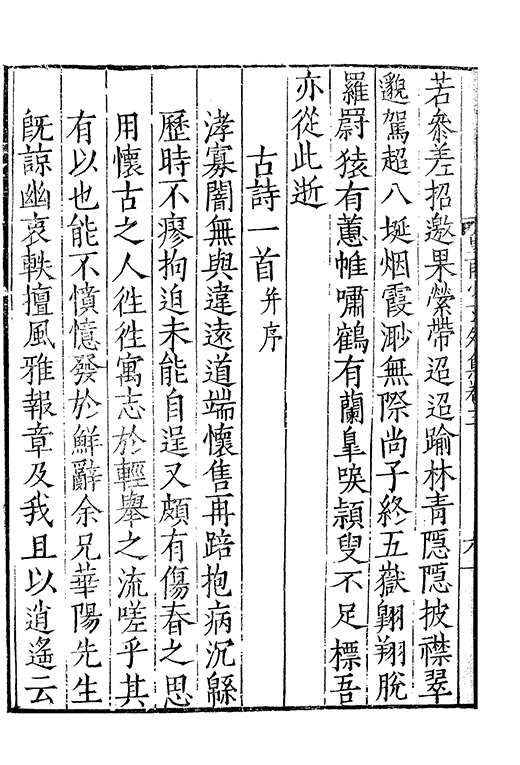 若叅差招邀果縈帶迢迢踰林青隱隱披襟翠
邈駕超八埏烟霞渺無際尚子終五嶽翱翔脫
羅罻猿有蕙帷嘯鶴有蘭臯唳頴叟不足標吾
亦從此逝
古詩一首 并序
涍寡闇無與違遠道端懷售再踣抱病沉緜
歷時不瘳拘迫未能自逞又頗有傷春之思
用懷古之人徃徃寓志於輕舉之流嗟乎其
有以也能不憤憶發於鮮辭余兄華陽先生
旣諒幽衷軼擅風雅報章及我且以逍遙云